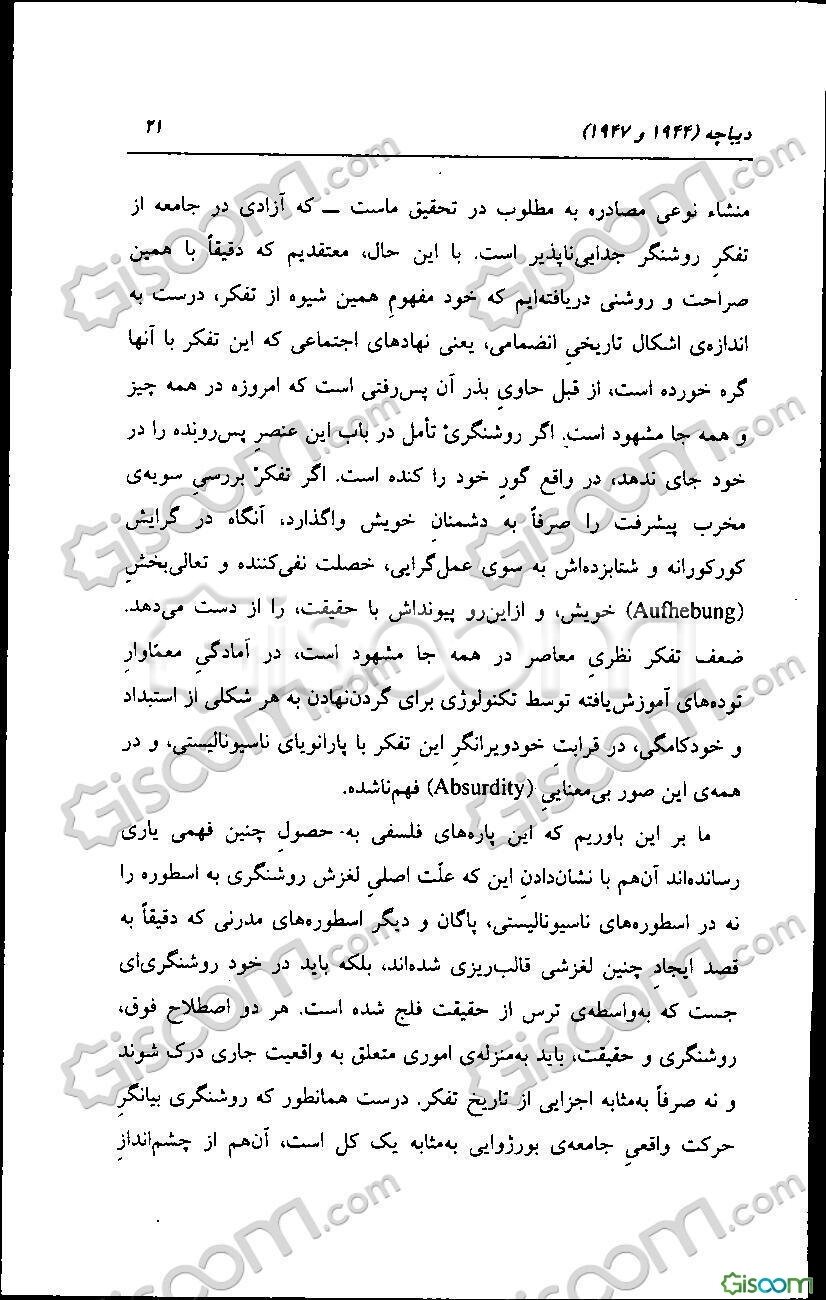 دیباچه (۱۹۴۴ و ۱۹۴۷)
۲۱
منشاء نوعی مصادره به مطلوب در تحقیق ماست ــ که آزادی در جامعه از
تفکرِ روشنگر جدایی‌ناپذیر است. با این حال، معتقدیم که دقیقاً با همین
صراحت و روشنی دریافته‌ایم که خود مفهومِ همین شیوه از تفکر، درست به
اندازه‌ی اشکال تاریخیِ انضمامی، یعنی نهادهای اجتماعی که این تفکر با آنها
گره خورده است، از قبل حاویِ بذر آن پس‌رفتی است که امروزه در همه چیز
و همه جا مشهود است. اگر روشنگریْ تأمل در باب این عنصرِ پس‌رونده را در
خود جای ندهد، در واقع گورِ خود را کنده است. اگر تفکرْ بررسیِ سویه‌ی
مخرب پیشرفت را صرفاً به دشمنانِ خویش واگذارد، آنگاه در گرایش
کورکورانه و شتابزده‌اش به سوی عمل‌گرایی، خصلت نفی‌کننده و تعالی‌بخشِ
(Aufhebung) خویش، و ازاین‌رو پیونداش با حقیقت، را از دست می‌دهد.
ضعف تفکر نظریِ معاصر در همه جا مشهود است، در آمادگیِ معمّاوارِ
توده‌های آموزش‌یافته توسط تکنولوژی برای گردن‌نهادن به هر شکلی از استبداد
و خودکامگی، در قرابتِ خودویرانگرِ این تفکر با پارانویای ناسیونالیستی، و در
همه‌ی این صور بی‌معناییِ (Absurdity) فهم‌ناشده.
ما بر این باوریم که این پاره‌های فلسفی به حصولِ چنین فهمی یاری
رسانده‌اند آن‌هم با نشان‌دادنِ این که علّت اصلیِ لغزش روشنگری به اسطوره را
نه در اسطوره‌های ناسیونالیستی، پاگان و دیگر اسطوره‌های مدرنی که دقیقاً به
قصد ایجادِ چنین لغزشی قالب‌ریزی شده‌اند، بلکه باید در خود روشنگری‌ای
جست که به‌واسطه‌ی ترس از حقیقت فلج شده است. هر دو اصطلاح فوق،
روشنگری و حقیقت، باید به‌منزله‌ی اموری متعلق به واقعیت جاری درک شوند
و نه صرفاً به‌مثابه اجزایی از تاریخ تفکر. درست همانطور که روشنگری بیانگرِ
حرکت واقعیِ جامعه‌ی بورژوایی به‌مثابه یک کل است، آن‌هم از چشم‌اندازِ
Gisoom.com
Gisoom